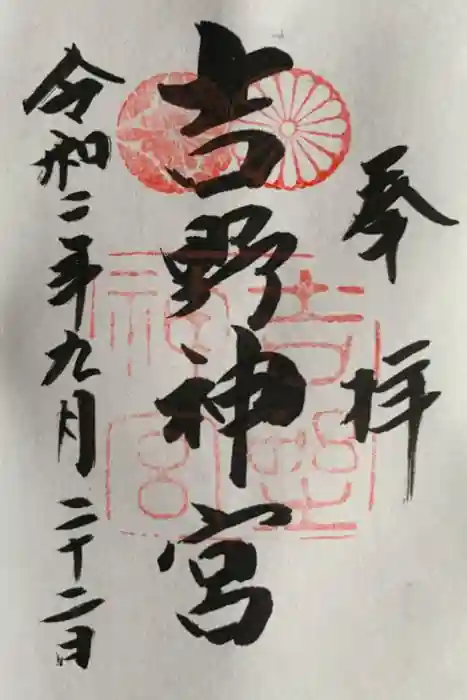 奉拝
吉野神宮
令和二年九月二十二日
吉野神宮